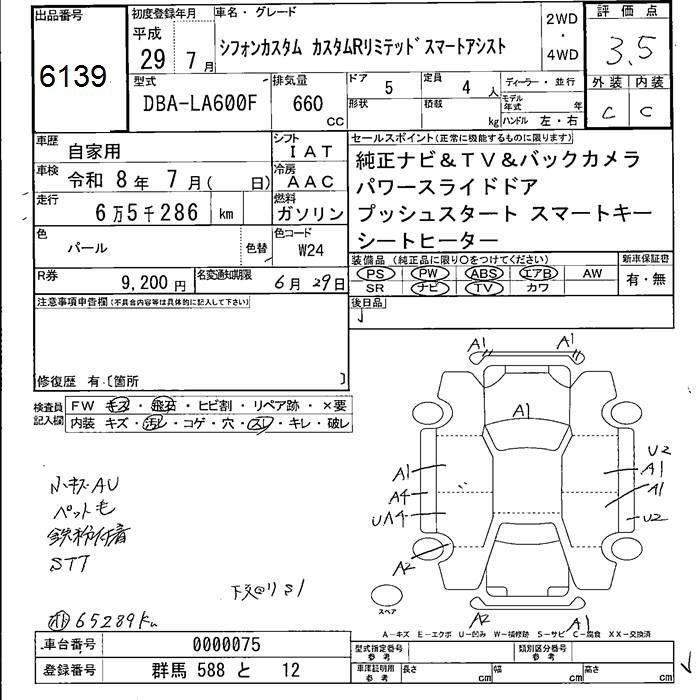 出品番号
6139
初度登録年月
平成
29年 7月
車名・グレード
シフォンカスタム カスタムRリミテッドスマートアシスト
2WD
・
4WD
評価点
3.5
外装 内装
C C
型式
DBA-LA600F
排気量
660
cc
ドア 5
定員 4人
形状
積載 kg
ディーラー・並行
モデル年式 年
ハンドル 左・右
車歴 自家用
シフト
IAT
車検 令和 8年 7月( 日)
冷房
AAC
走行 6万5千286 km
燃料
ガソリン
色 パール
色替
色コード
W24
R券 9,200円
名変通知期限 6月29日
セールスポイント(正常に機能するものに限ります)
純正ナビ&TV&バックカメラ
パワースライドドア
プッシュスタート スマートキー
シートヒーター
装備品 (純正品に限り○をつけてください)
PS PW ABS エアB AW
SR ナビ TV カワ
新車保証書
有・無
後日品
注意事項申告欄(不具合内容等は具体的に記入して下さい)
修復歴 有〔箇所 〕
検査員記入欄
FW キズ・飛石・ヒビ割・リペア跡・×要
内装 キズ・汚レ・コゲ・穴・スレ・キレ・破レ
小キズAU
ペット毛
鉄粉付着
ST7
下廻りS1
65289km
A1 A1
A1
A1
A4
UA4
A2
U2
A1
A1
U2
A2
A1
スペア
A-キズ E-エクボ U-凹み W-補修跡 S-サビ C-腐食 XX-交換済
車台番号 0000075
登録番号 群馬 588 と 12
型式指定番号
参考
類別区分番号
参考
車庫証明用
参考
長さ cm
幅 cm
高さ cm